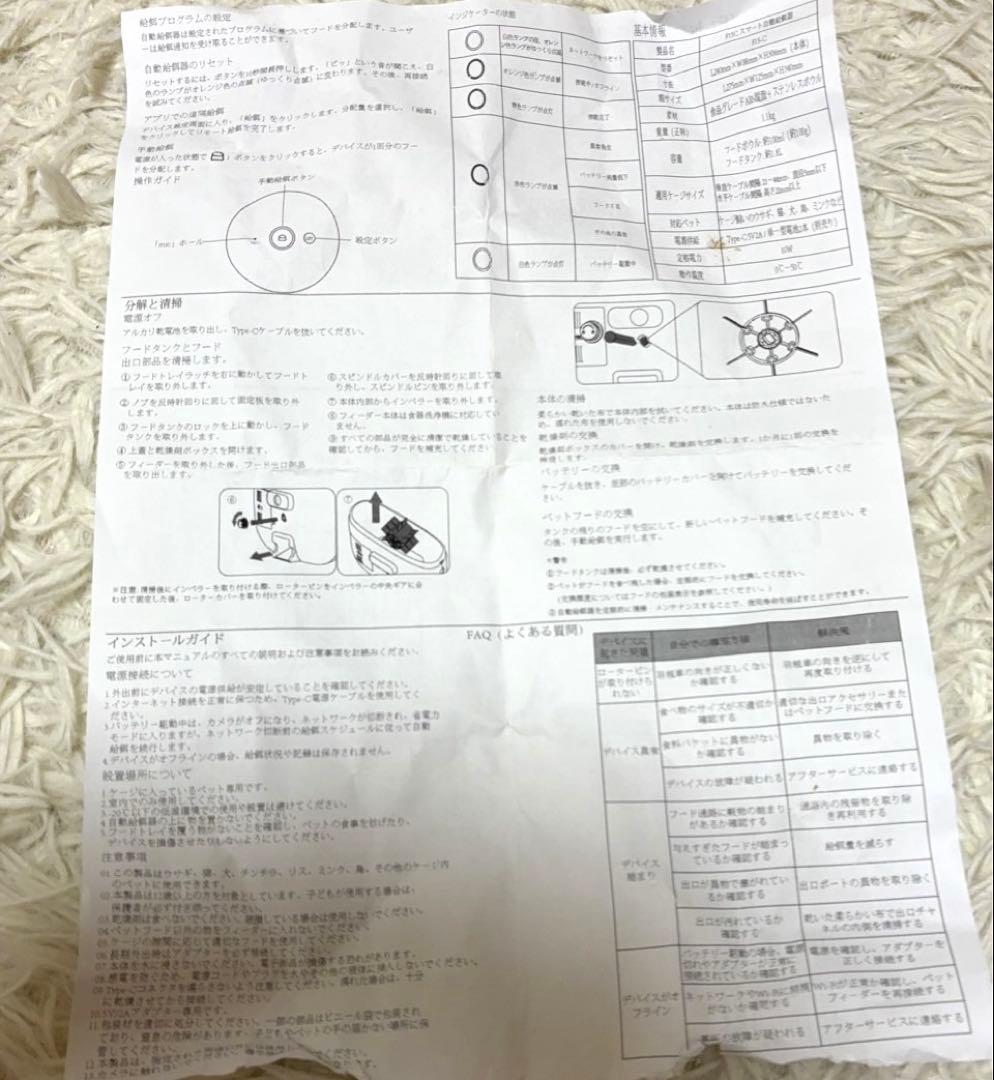 給餌プログラムの設定
自動給餌器は設定されたプログラムに基づいてフードを分配します。ユーザ
ーは給餌通知を受け取ることができます。
自動給餌器のリセット
リセットするには、ボタンを10秒間長押しします。「ピッ」という音が聞こえ、白
色のランプがオレンジ色の点滅（ゆっくり点滅）に変わります。その後、再接続
を試みてください。
アプリでの遠隔給餌
デバイス設定画面に入り、「給餌」をクリックします。分配量を選択し、「給餌」
をクリックしてリモート給餌を完了します。
手動給餌
電源が入った状態で ボタンをクリックすると、デバイスが1回分のフー
ドを分配します。
操作ガイド
手動給餌ボタン
ホール
設定ボタン
インジケーターの状態
ネットワークリセット
オレンジ色ランプが点滅
バッテリー残量低下
白色ランプが点灯
バッテリー駆動中
基本情報
製品名
型番
寸法
箱サイズ
素材
食品グレードABS樹脂＋ステンレスボウル
重量（正味）
1.1kg
容量
適用ケージサイズ
対応ペット
ケージ飼いのウサギ、猫、犬、鳥、ミンクなど
電源供給
定格電力
10W
動作温度
分解と清掃
電源オフ
アルカリ乾電池を取り出し、Type-Cケーブルを抜いてください。
フードタンクとフード
出口部品を清掃します。
①フードトレイラッチを右に動かしてフードト
レイを取り外します。
②ノブを反時計回りに回して固定板を取り外
します。
③フードタンクのロックを上に動かし、フード
タンクを取り外します。
④上蓋と乾燥剤ボックスを開けます。
⑤フィーダーを取り外した後、フード出口部品
を取り出します。
⑥スピンドルカバーを反時計回りに回して取
り外し、スピンドルピンを取り外します。
⑦本体内部からインペラーを取り外します。
⑧フィーダー本体は食器洗浄機に対応してい
ません。
⑨すべての部品が完全に清潔で乾燥していることを
確認してから、フードを補充してください。
⑥
⑦
※注意:清掃後にインペラーを取り付ける際、ローターピンをインペラーの中央ギアに合
わせて固定した後、ローターカバーを取り付けてください。
本体の清掃
柔らかい乾いた布で本体内部を拭いてください。本体は防水仕様ではないた
め、濡れた布を使用しないでください。
乾燥剤の交換
乾燥剤ボックスのカバーを開け、乾燥剤を交換します。1か月に1回の交換を
推奨します。
バッテリーの交換
ケーブルを抜き、底部のバッテリーカバーを開けてバッテリーを交換してくだ
さい。
ペットフードの交換
タンクの残りのフードを空にして、新しいペットフードを補充してください。そ
の後、手動給餌を実行します。
*警告
①フードタンクは清掃後、必ず乾燥させてください。
②ペットがフードを食べ残した場合、定期的にフードを交換してください。
（交換頻度についてはフードの包装表示を参照してください。）
③自動給餌器を定期的に清掃・メンテナンスすることで、使用寿命を延ばすことができます。
インストールガイド
ご使用前に本マニュアルのすべての説明および注意事項をお読みください。
電源接続について
1.外出前にデバイスの電源供給が安定していることを確認してください。
2.インターネット接続を正常に保つため、Type-C電源ケーブルを使用してく
ださい。
3.バッテリー駆動中は、カメラがオフになり、ネットワークが切断され、省電力
モードに入りますが、ネットワーク切断前の給餌スケジュールに従って自動
給餌を続行します。
4.デバイスがオフラインの場合、給餌状況や記録は保存されません。
設置場所について
1.ケージに入っているペット専用です。
2.室内でのみ使用してください。
3.-20℃以下の低温環境での使用や設置は避けてください。
4.自動給餌器の上に物を置かないでください。
5.フードトレイを覆う物がないことを確認し、ペットの食事を妨げたり、
デバイスを損傷させたりしないようにしてください。
注意事項
01.この製品はウサギ、猫、犬、チンチラ、リス、ミンク、鳥、その他のケージ内
のペットに使用できます。
02.本製品は12歳以上の方を対象としています。子どもが使用する場合は、
保護者が必ず付き添ってください。
03.乾燥剤は食べないでください。破損している場合は使用しないでください。
04.ペットフード以外の物をフィーダーに入れないでください。
05.ケージの隙間に応じて適切なフードを使用してください。
06.長期外出時はアダプターを必ず接続してください。
07.本体を水に浸さないでください。電子部品が損傷する恐れがあります。
08.感電を防ぐため、電源コードやプラグを水やその他の液体に浸入しないでください。
09.Type-Cコネクタを濡らさないよう注意してください。濡れた場合は、十分
に乾燥させてから接続してください。
10.5V/2Aアダプター専用です。
11.包装材を適切に処分してください。一部の部品はビニール袋で包装され
ており、窒息の危険があります。子どもやペットの手の届かない場所に保
管してください。
12.本製品は、
FAQ（よくある質問）
デバイスに
起きた問題
解決策
ローターピン
が取り付けら
れない
羽根車の向きが正しくない
か確認する
羽根車の向きを逆にして
再度取り付ける
デバイス異音
食べ物のサイズが不適切か
確認する
適切な出口アクセサリーまた
はペットフードに交換する
食料バケットに異物がない
か確認する
異物を取り除く
デバイスの故障が疑われる
アフターサービスに連絡する
デバイス
詰まり
フード通路に穀物の詰まり
があるか確認する
通路内の残留物を取り除
き再利用する
与えすぎたフードが詰まっ
ているか確認する
給餌量を減らす
出口が異物で塞がれてい
るか確認する
出口ポートの異物を取り除く
出口が汚れているか
確認する
乾いた柔らかい布で出口チャ
ネルの内側を清掃する
デバイスがオ
フライン
バッテリー駆動の場合、電源
切れやアダプターが正常に
接続されているか確認する
電源を確認し、アダプターを
正しく接続する
ネットワークやWi-Fiに問題
がないか確認する
Wi-Fiが正常か確認し、ペット
フィーダーを再接続する
の故障が疑われる
アフターサービスに連絡する